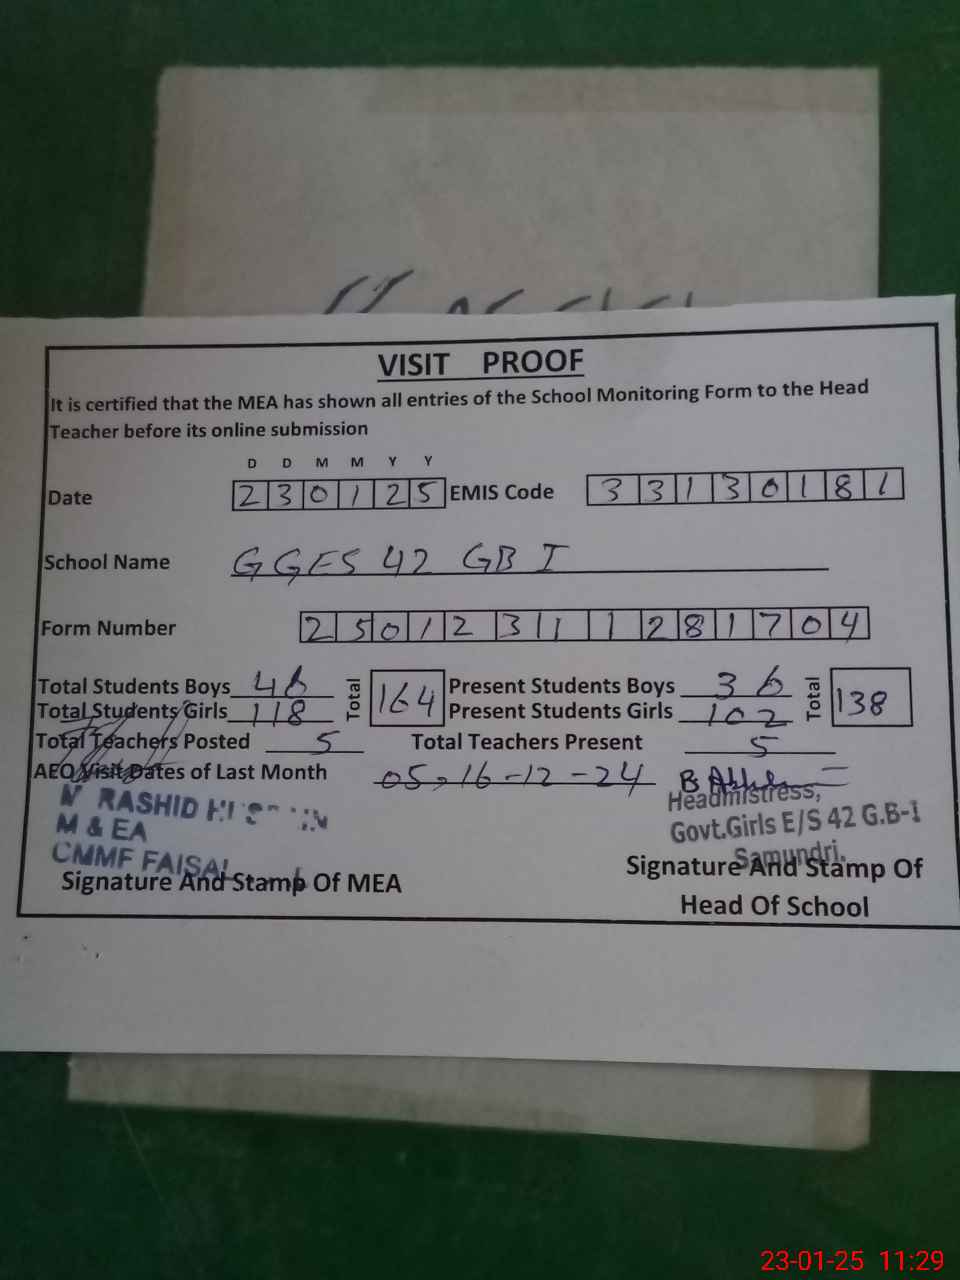 VISIT PROOF
It is certified that the MEA has shown all entries of the School Monitoring Form to the Head
Teacher before its online submission
D D M M Y Y
Date 230125 EMIS Code 33130181
School Name GGES 42 GB I
Form Number 25012311281704
Total Students Boys 46 Total 164 Present Students Boys 36 Total 138
Total Students Girls 118 Present Students Girls 102
Total Teachers Posted 5 Total Teachers Present 5
AEO Visit Dates of Last Month 05, 16-12-24
RASHID
M & EA
CMMF FAISAL
Signature And Stamp Of MEA
Headmistress,
Govt.Girls E/S 42 G.B-I
Samundri.
Signature And Stamp Of
Head Of School
23-01-25 11:29